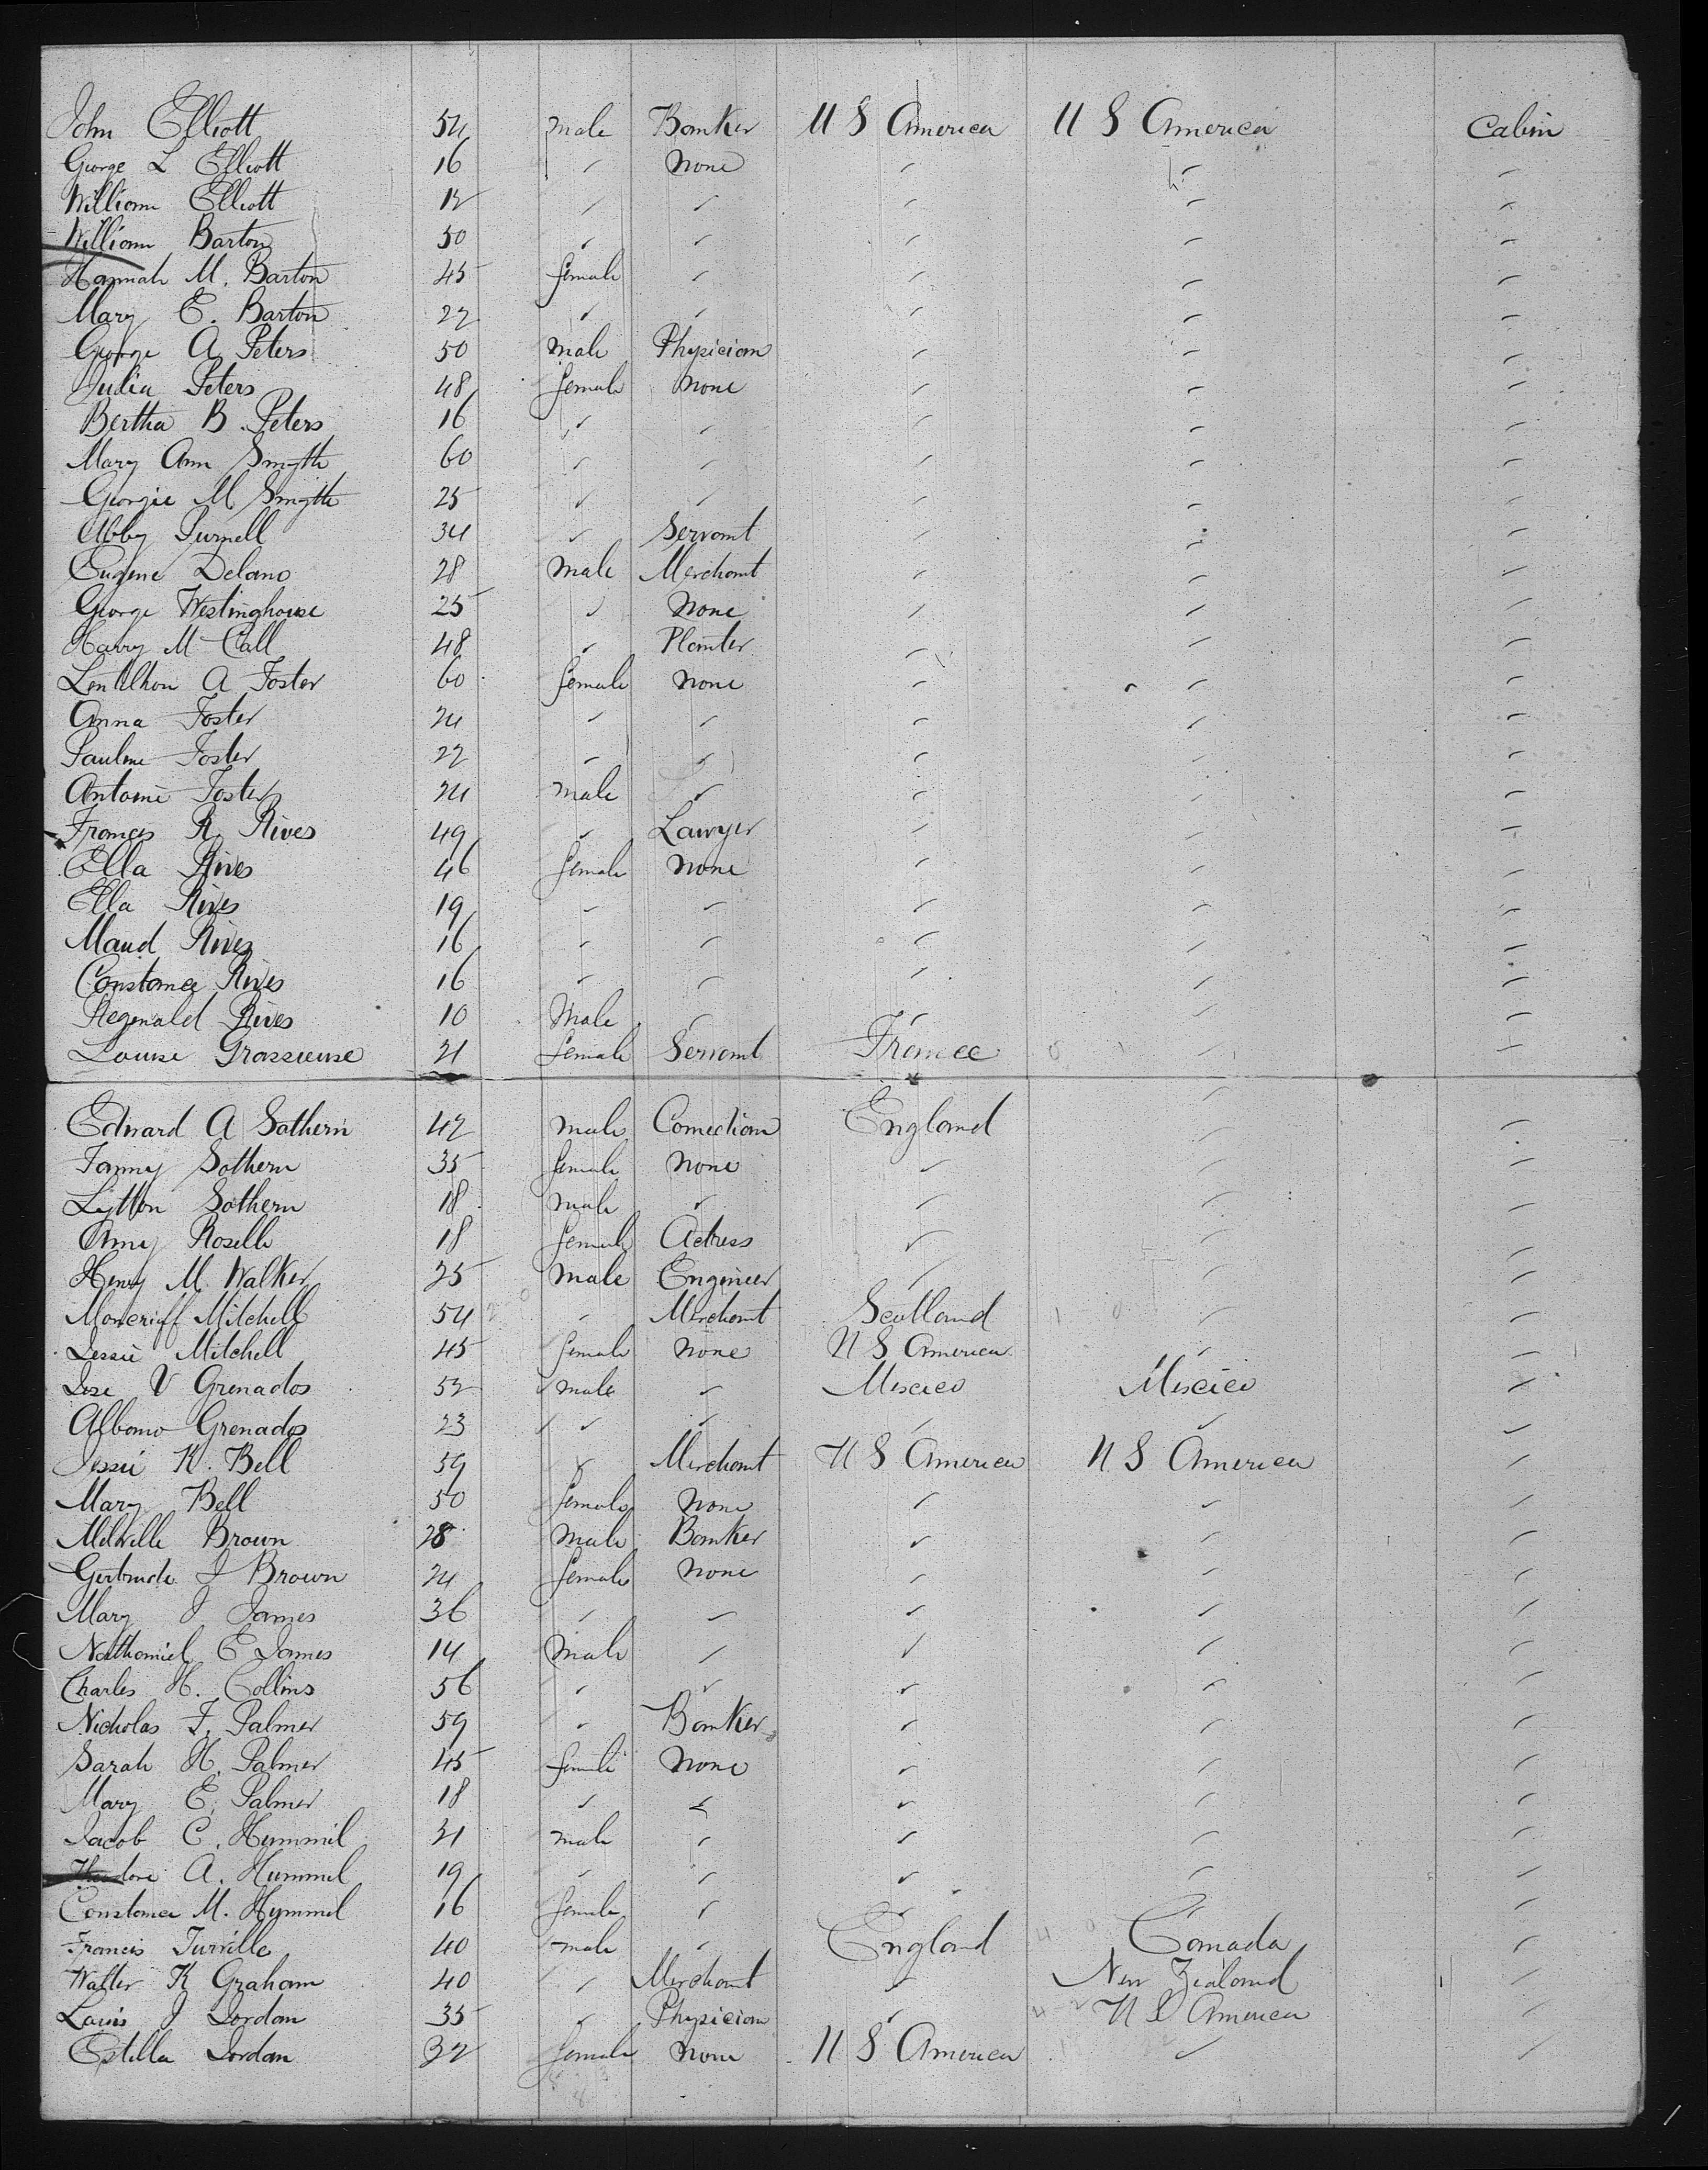 John Elliott 54 male Banker U S America U S America Cabin
George L Elliott 16 " None " " "
William Elliott 12 " " " " "
William Barton 50 " " " " "
Hannah M. Barton 45 female " " " "
Mary E. Barton 22 " " " " "
George A Peters 50 male Physician " " "
Julia Peters 48 female none " " "
Bertha B. Peters 16 " " " " "
Mary Ann Smyth 60 " " " " "
Georgie M Smyth 25 " " " " "
Abby Purnell 34 " Servant " " "
Eugene Delano 28 male Merchant " " "
George Westinghouse 25 " None " " "
Harry M Call 48 " Planter " " "
Lentilhon A Foster 60 female none " " "
Anna Foster 24 " " " " "
Pauline Foster 22 " " " " "
Antoine Foster 24 male " " " "
Francis R. Rives 49 " Lawyer " " "
Ella Rives 46 female none " " "
Ella Rives 19 " " " " "
Maud Rives 16 " " " " "
Constance Rives 16 " " " " "
Reginald Rives 10 Male " " " "
Louise Grassieuse 21 female Servant France " "
Edward A Sothern 42 male Comedian England " "
Fanny Sothern 35 female none " " "
Lytton Sothern 18 male " " " "
Amy Roselle 18 female Actress " " "
Henry M. Walker 25 male Engineer " " "
Moncriff Mitchell 54 " Merchant Scotland " "
Jessie Mitchell 45 female none U S America " "
Jose V Grenados 52 male " Mexico Mexico "
Albano Grenados 23 " " " " "
Jessie K. Bell 59 " Merchant U S America U S America "
Mary Bell 50 female none " " "
Melville Brown 28 male Banker " " "
Gertrude I Brown 24 female none " " "
Mary I James 36 " " " " "
Nathaniel E James 14 male " " " "
Charles H. Collins 56 " " " " "
Nicholas F. Palmer 59 " Banker " " "
Sarah H. Palmer 45 female none " " "
Mary E. Palmer 18 " " " " "
Jacob C. Hummil 31 male " " " "
Theodore A. Hummel 19 " " " " "
Constance M. Hymmil 16 female " " " "
Francis Turville 40 male " England Canada "
Walter K Graham 40 " Merchant " New Zealand "
Louis J Jordan 35 " Physician " U S America "
Estella Jordan 32 female none U S America " "